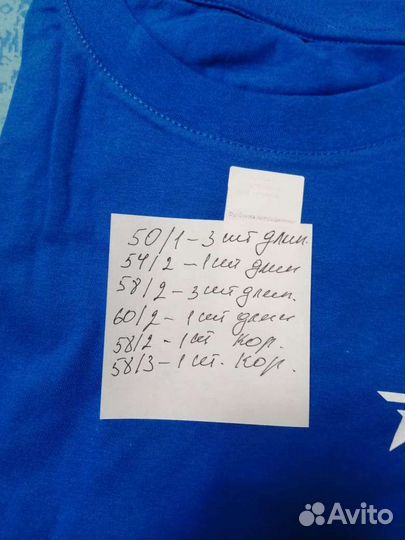 50/1 - 3 шт длин.
54/2 - 1 шт длин
58/2 - 3 шт длин.
60/2 - 1 шт длин
58/2 - 1 шт кор.
58/3 - 1 шт. кор.
Avito